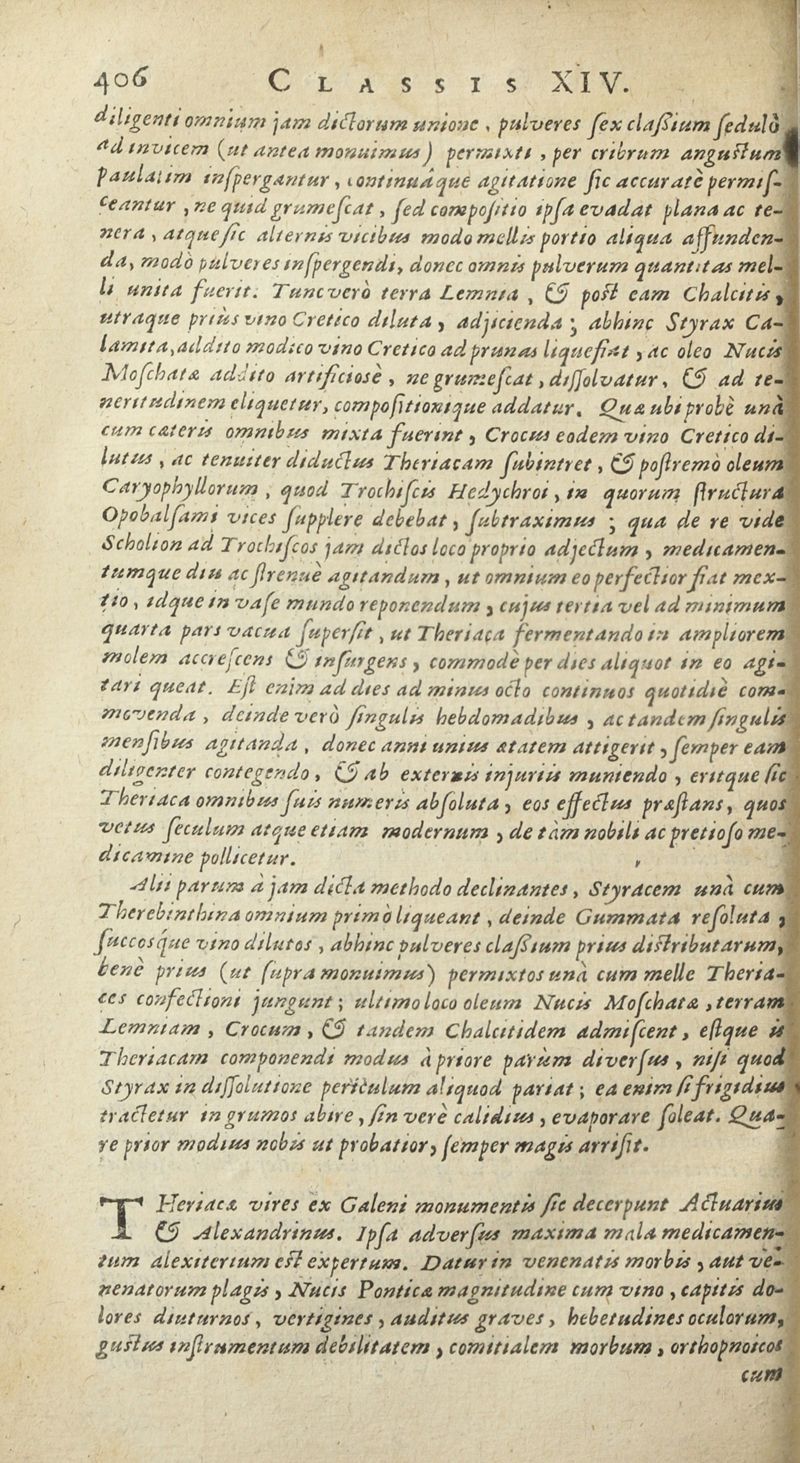 406 CLASSIS XIV.
diligenti omnium jam dictorum unione, pulveres sex classium sedulò
ad invicem (ut antea monuimus) permixti, per cribrum angustum
paulatim inspergantur, continuáque agitatione sic accuratè permis-
ceantur, ne quid grumescat, sed compositio ipsa evadat plana ac te-
nera, atque sic alternis vicibus modo mellis portio aliqua affunden-
da, modò pulveres inspergendi, donec omnis pulverum quantitas mel-
li unita fuerit. Tunc verò terra Lemnia, & post eam Chalcitis,
utraque priùs vino Cretico diluta, adjicienda; abhinc Styrax Ca-
lamita, addito modico vino Cretico ad prunas liquefiat, ac oleo Nucis
Moschatæ addito artificiosè, ne grumescat, dissolvatur, & ad te-
neritudinem eliquetur, compositionique addatur. Quæ ubi probè unà
cum cæteris omnibus mixta fuerint, Crocus eodem vino Cretico di-
lutus, ac tenuiter diductus Theriacam subintret, & postremò oleum
Caryophyllorum, quod Trochiscis Hedychroi, in quorum structura
Opobalsami vices supplere debebat, subtraximus; qua de re vide
Scholion ad Trochiscos jam dictos loco proprio adjectum, medicamen-
tumque diu ac strenuè agitandum, ut omnium eo perfectior fiat mex-
tio, idque in vase mundo reponendum, cujus tertia vel ad minimum
quarta pars vacua supersit, ut Theriaca fermentando in ampliorem
molem accrescens & insurgens, commodè per dies aliquot in eo agi-
tari queat. Est enim ad dies ad minus octo continuos quotidiè com-
movenda, deinde verò singulis hebdomadibus, ac tandem singulis
mensibus agitanda, donec anni unius ætatem attigerit, semper eam
diligenter contegendo, & ab externis injuriis muniendo, eritque sic
Theriaca omnibus suis numeris absoluta, eos effectus præstans, quos
vetus seculum atque etiam modernum, de tàm nobili ac pretioso me-
dicamine pollicetur.
Alii parum à jam dicta methodo declinantes, Styracem unà cum
Therebinthina omnium primò liqueant, deinde Gummata resoluta,
succosque vino dilutos, abhinc pulveres classium prius distributarum,
benè prius (ut supra monuimus) permixtos unà cum melle Theria-
ces confectioni jungunt; ultimo loco oleum Nucis Moschatæ, terram
Lemniam, Crocum, & tandem Chalcitidem admiscent, estque is
Theriacam componendi modus à priore parùm diversus, nisi quod
Styrax in dissolutione periculum aliquod pariat; ea enim si frigidius
tractetur in grumos abire, sin verè calidius, evaporare soleat. Qua-
re prior modius nobis ut probatior, semper magis arrisit.
THeriacæ vires ex Galeni monumentis sic decerpunt Actuarius
& Alexandrinus. Ipsa adversus maxima mala medicamen-
tum alexiterium est expertum. Datur in venenatis morbis, aut ve-
nenatorum plagis, Nucis Ponticæ magnitudine cum vino, capitis do-
lores diuturnos, vertigines, auditus graves, hebetudines oculorum,
gustus instrumentum debilitatem, comitialem morbum, orthopnoicos
cum